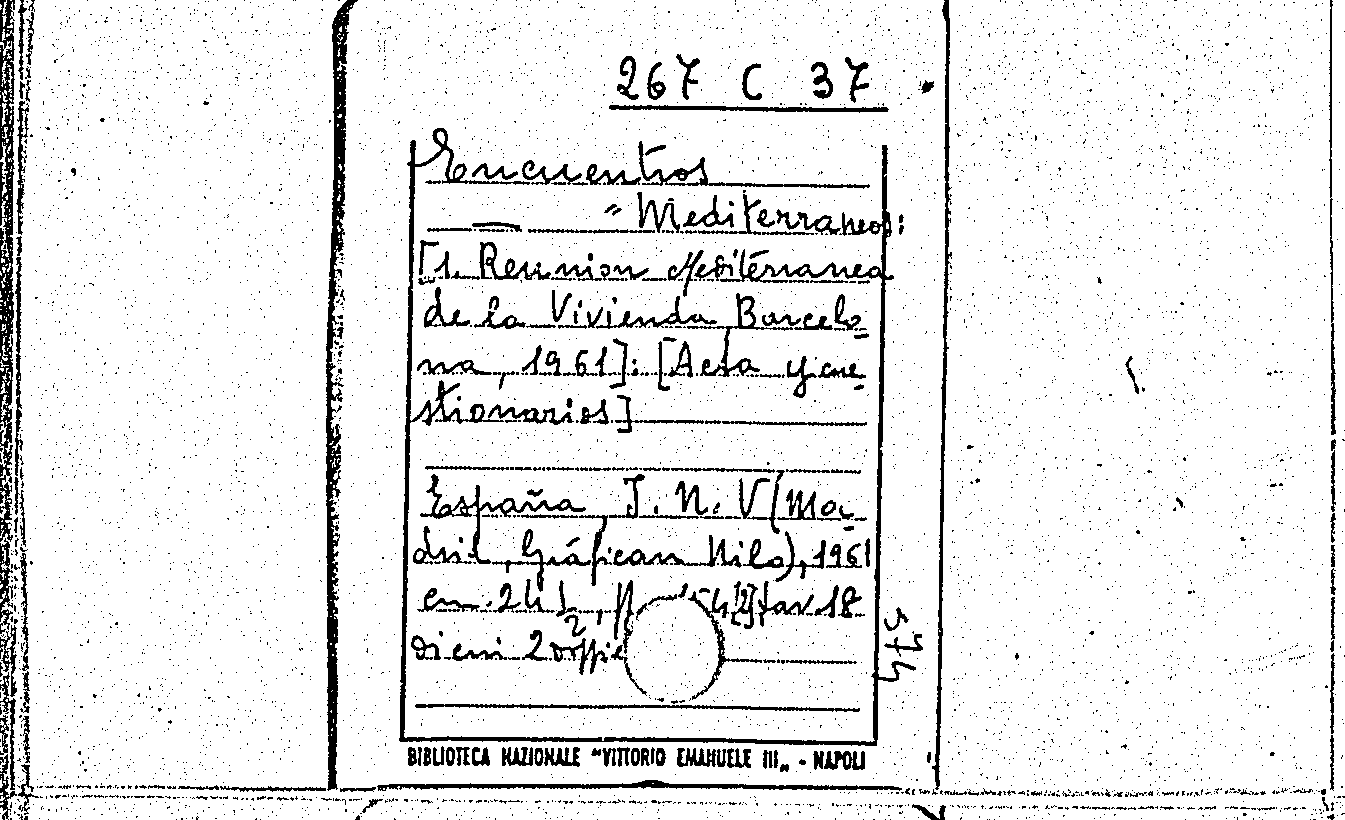 267 C 37
Encuentros
— " Mediterraneos:
[1. Reunion Mediterranea
de la Vivienda, Barcelo-
na, 1961]: [Acta y cue-
stionarios]
España, I. N. V (Ma-
drid, Gráfican Nilo), 1961
cm. 24 ½, tav 18
di cui 2 doppie
574
BIBLIOTECA NAZIONALE "VITTORIO EMANUELE III„ - NAPOLI